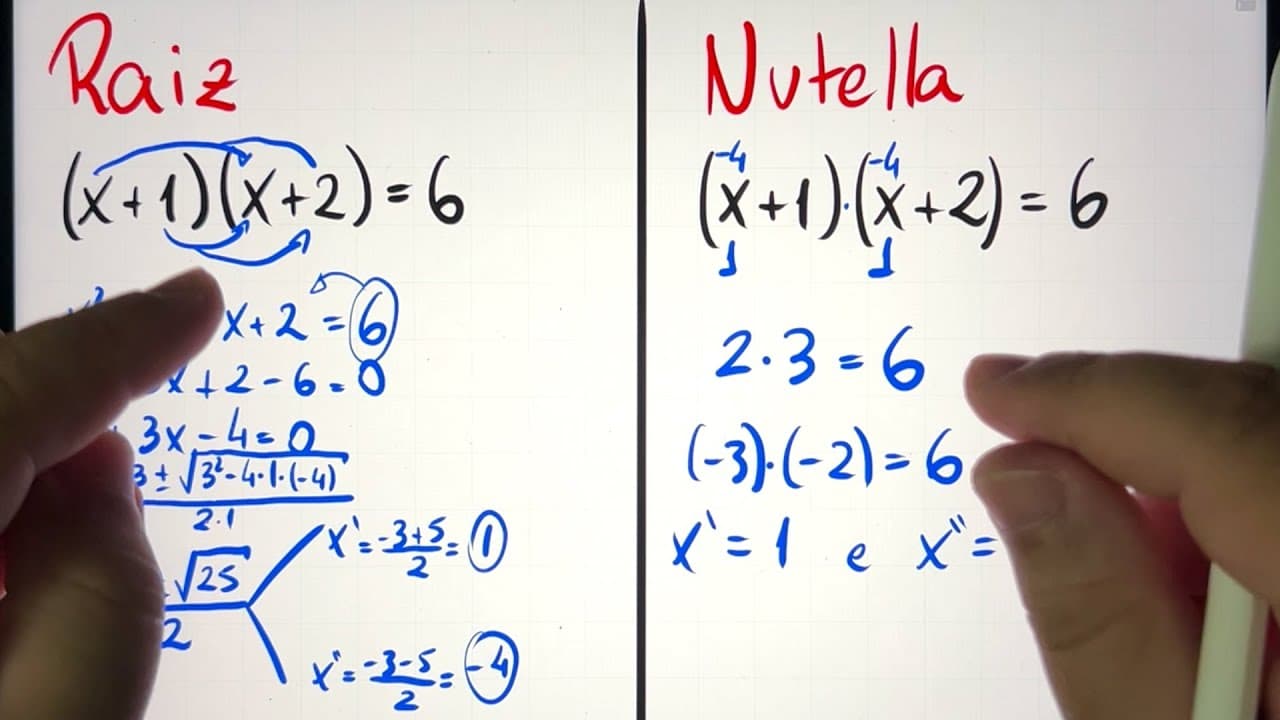 Raiz
(x+1)(x+2)=6
x+2=6
x+2-6=0
3x-4=0
3±√3²-4·1·(-4)
2·1
√25
2
x'=-3+5/2=1
x''=-3-5/2=-4
Nutella
-4 -4
(x+1)·(x+2)=6
1 1
2·3=6
(-3)·(-2)=6
x'=1 e x''=